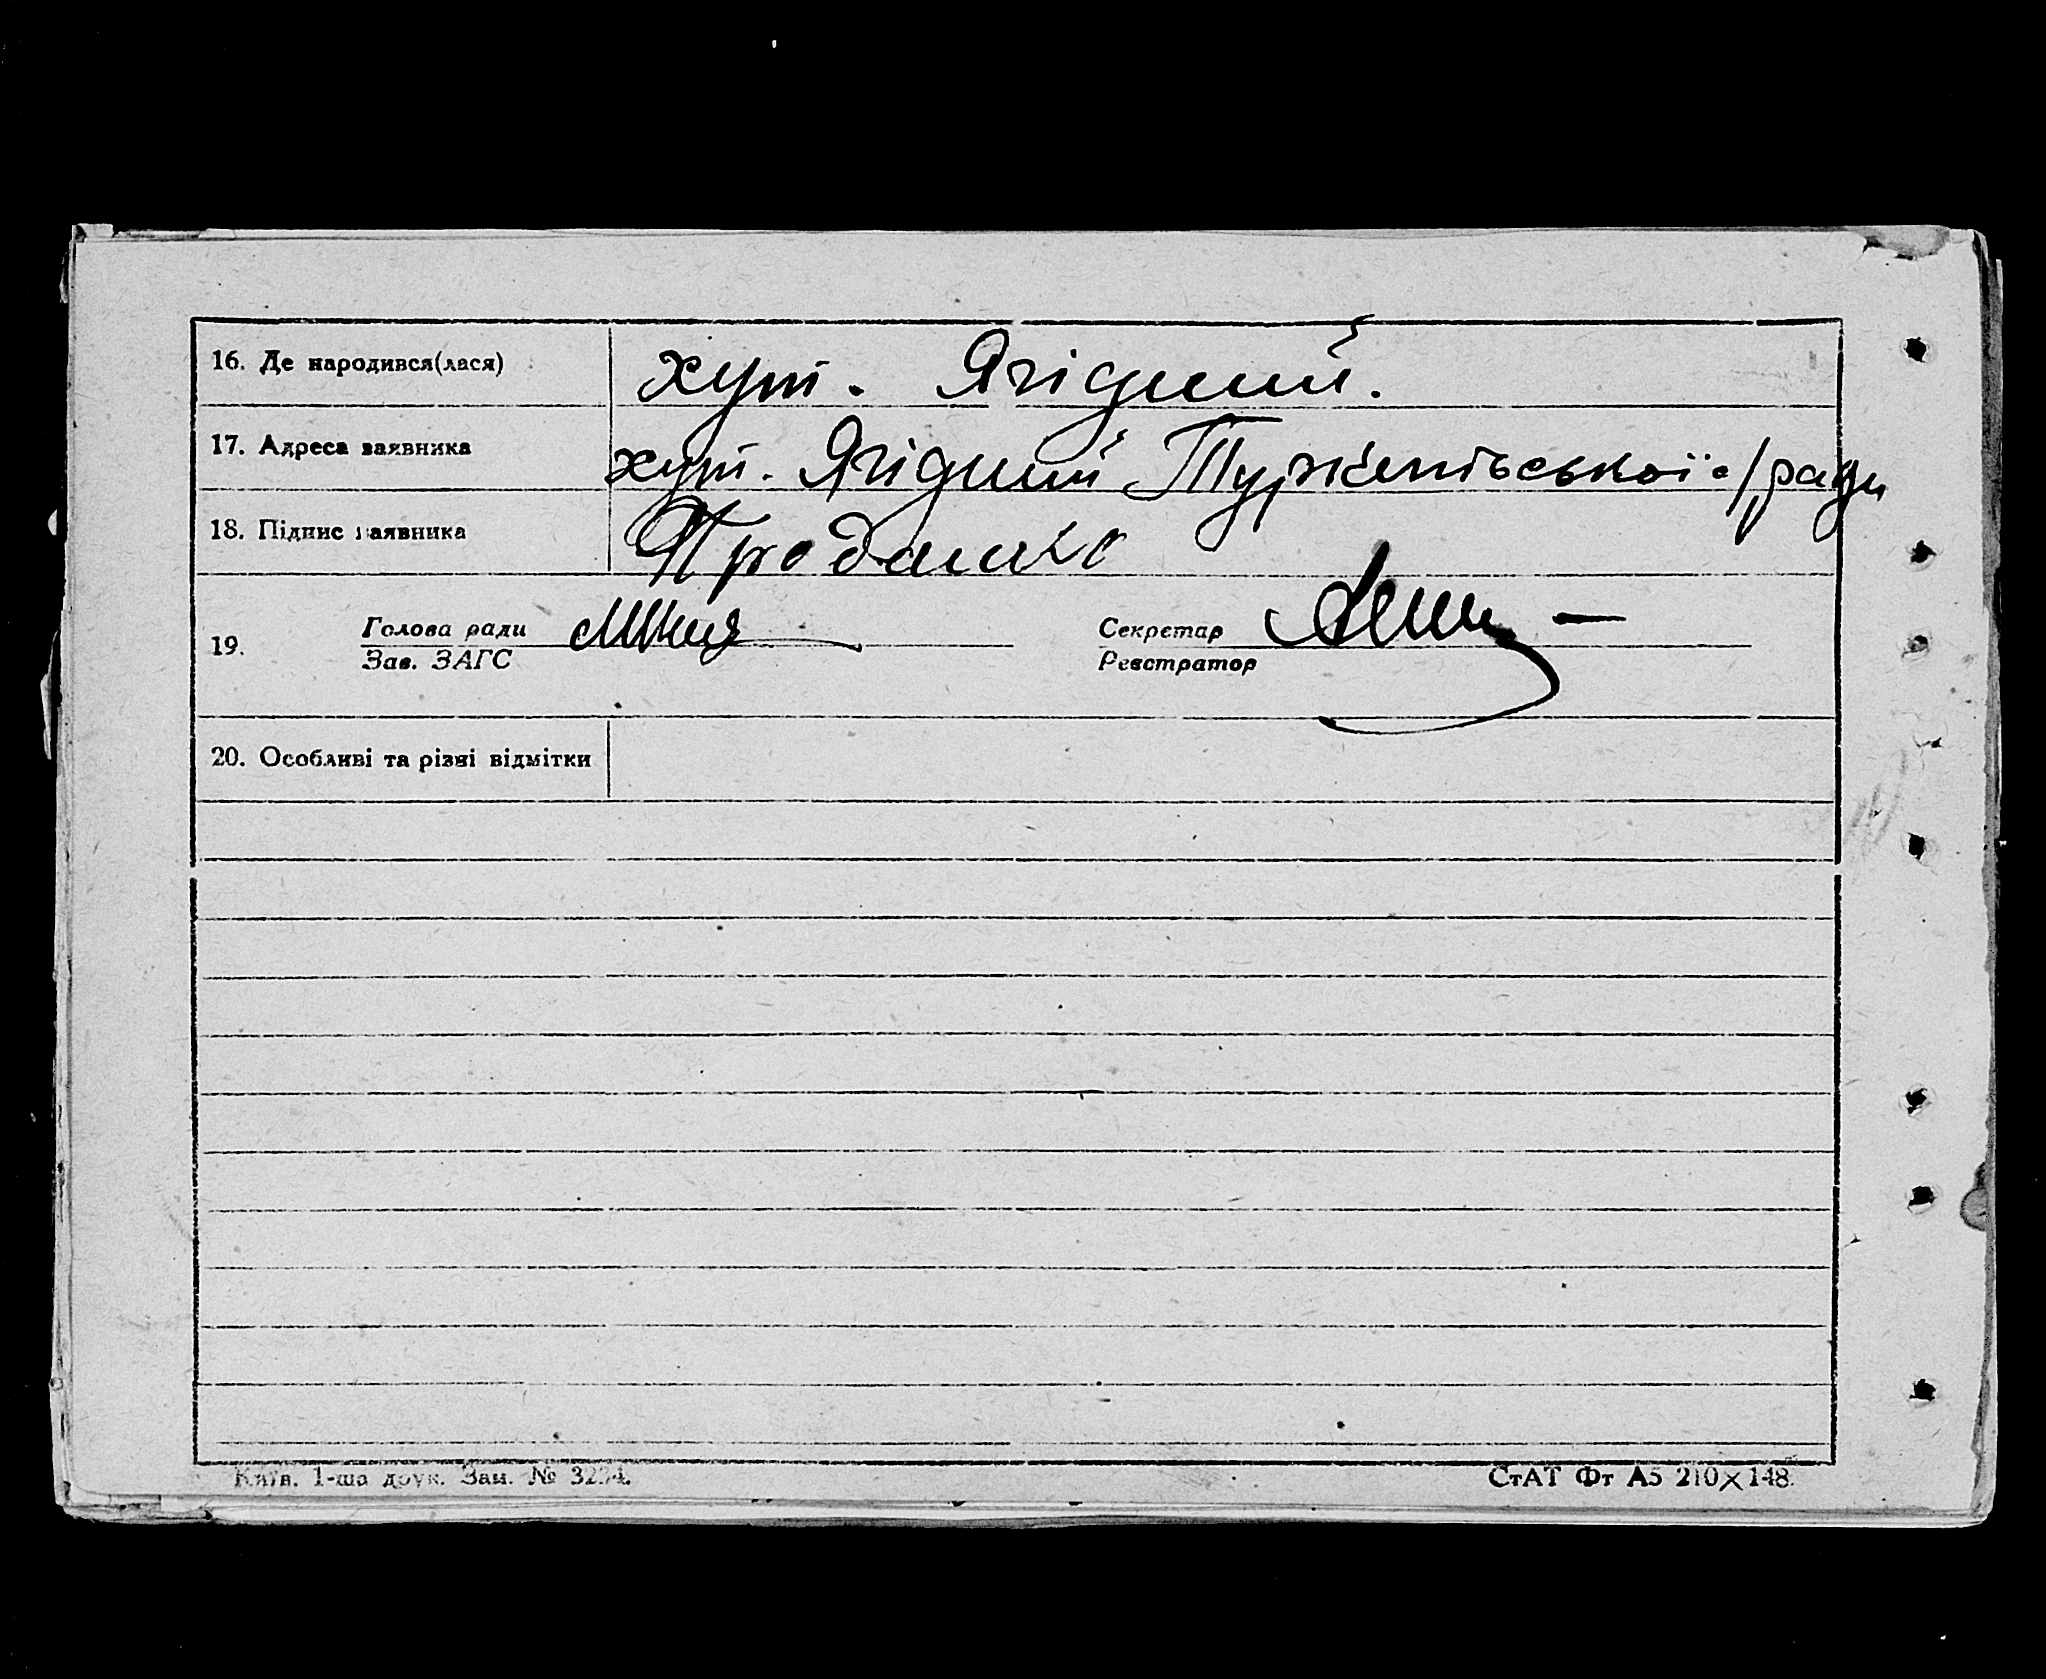 16. Де народився(лася) хут. Ягідний.
17. Адреса заявника хут. Ягідний Турженівської с/ради
18. Підпис заявника
19. Голова ради Секретар
Зав. ЗАГС Реєстратор
20. Особливі та різні відмітки
Київ. 1-ша друк. Зам. № 3234.
СтАТ Фт А5 210×148.